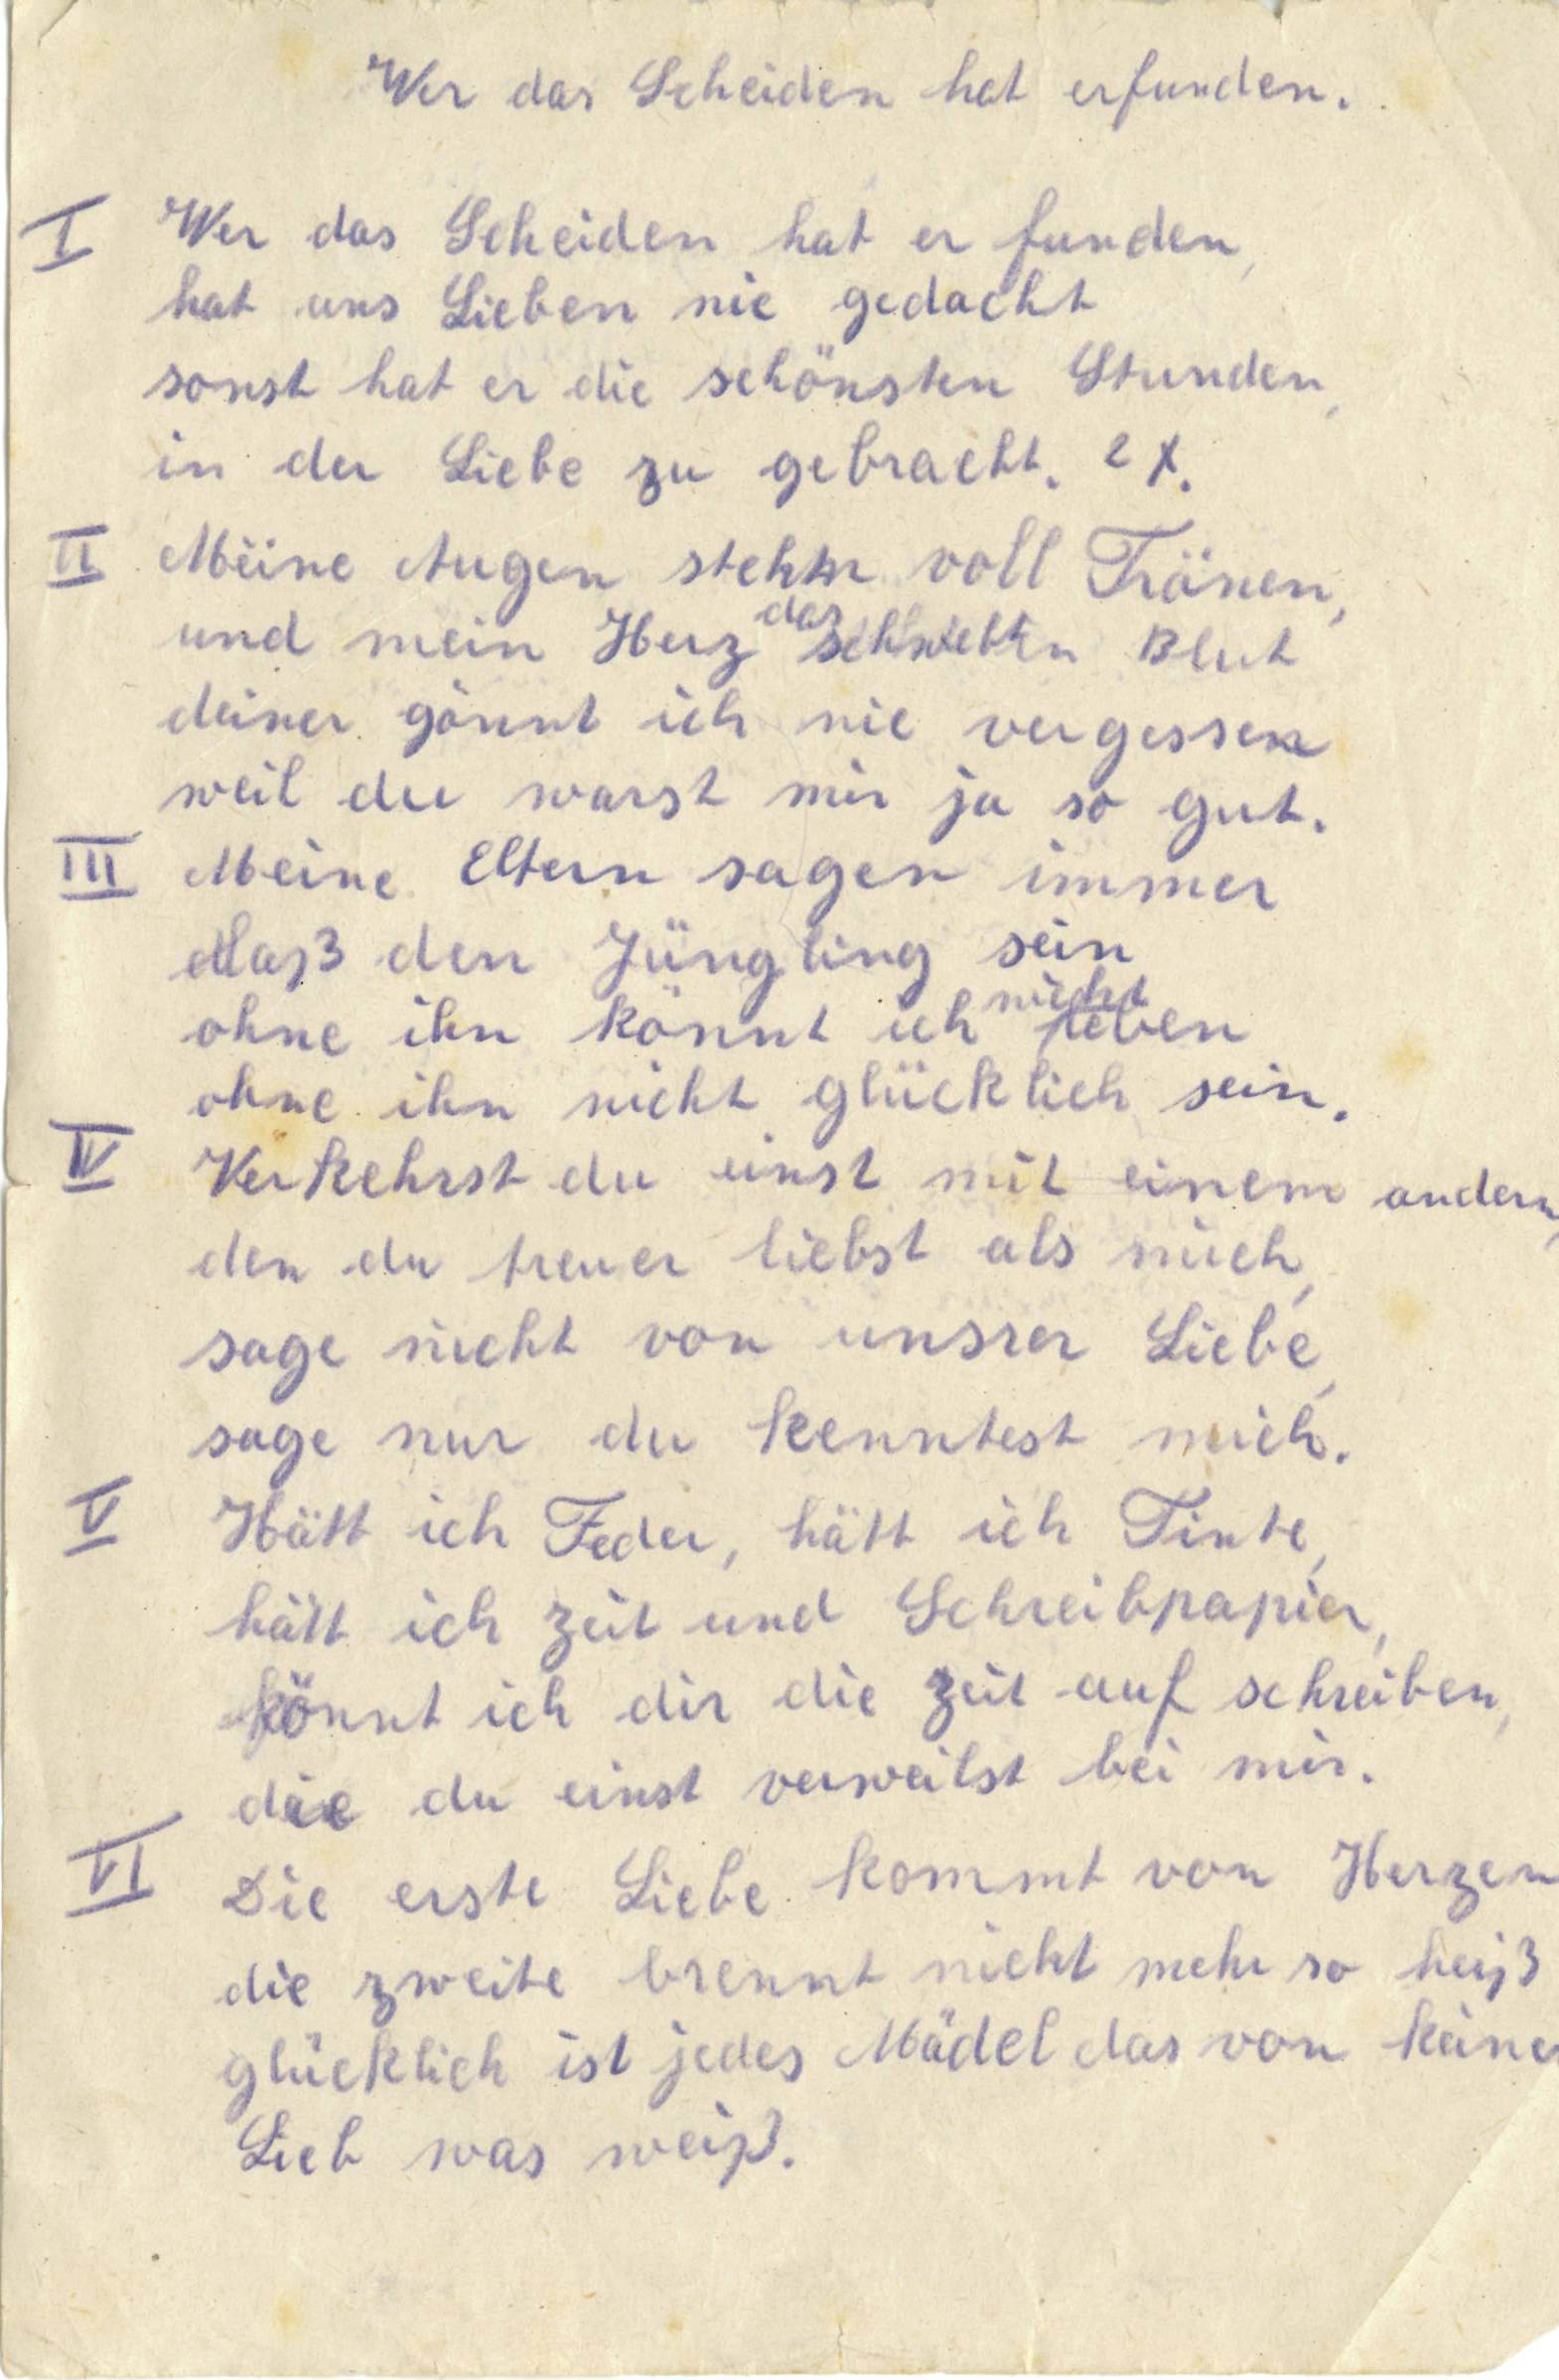 Wer das Scheiden hat erfunden.
I Wer das Scheiden hat er funden,
hat uns Lieben nie gedacht
sonst hat er die schönsten Stunden,
in der Liebe zu gebracht. 2 x.
II Meine Augen stehen voll Tränen,
und mein Herz das Blut
deiner gönnt ich nie vergessen
weil du warst mir ja so gut.
III Meine Eltern sagen immer
daß den Jüngling sein
ohne ihn könnt ich nicht leben
ohne ihn nicht glücklich sein.
IV Verkehrst du einst mit einem andern,
den du treuer liebst als mich,
sage nicht von unsrer Liebe,
sage nur du kenntest mich.
V Hätt ich Feder, hätt ich Tinte,
hätt ich Zeit und Schreibpapier,
könnt ich dir die Zeit auf schreiben,
die du einst verweilst bei mir.
VI Die erste Liebe kommt von Herzen
die zweite brennt nicht mehr so heiß
glücklich ist jedes Mädel das von keiner
Lieb was weiß.